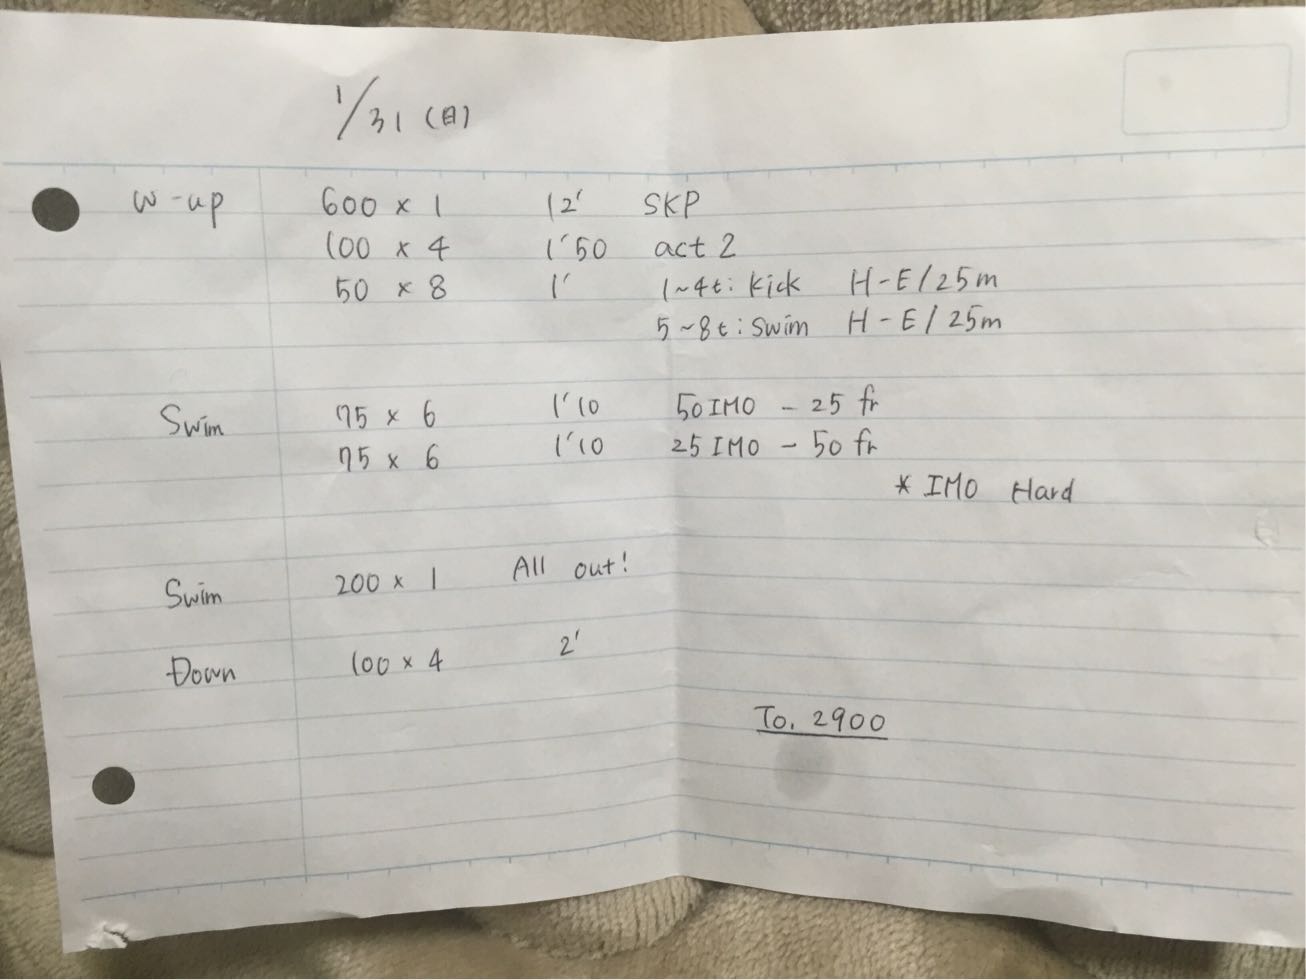 1/31 (日)
W-up 600 × 1 12' SKP
100 × 4 1'50 act 2
50 × 8 1' 1~4t: Kick H-E/25m
5~8t: Swim H-E/25m
Swim 75 × 6 1'10 50 IMO - 25 fr
75 × 6 1'10 25 IMO - 50 fr
* IMO Hard
Swim 200 × 1 All out!
Down 100 × 4 2'
To. 2900